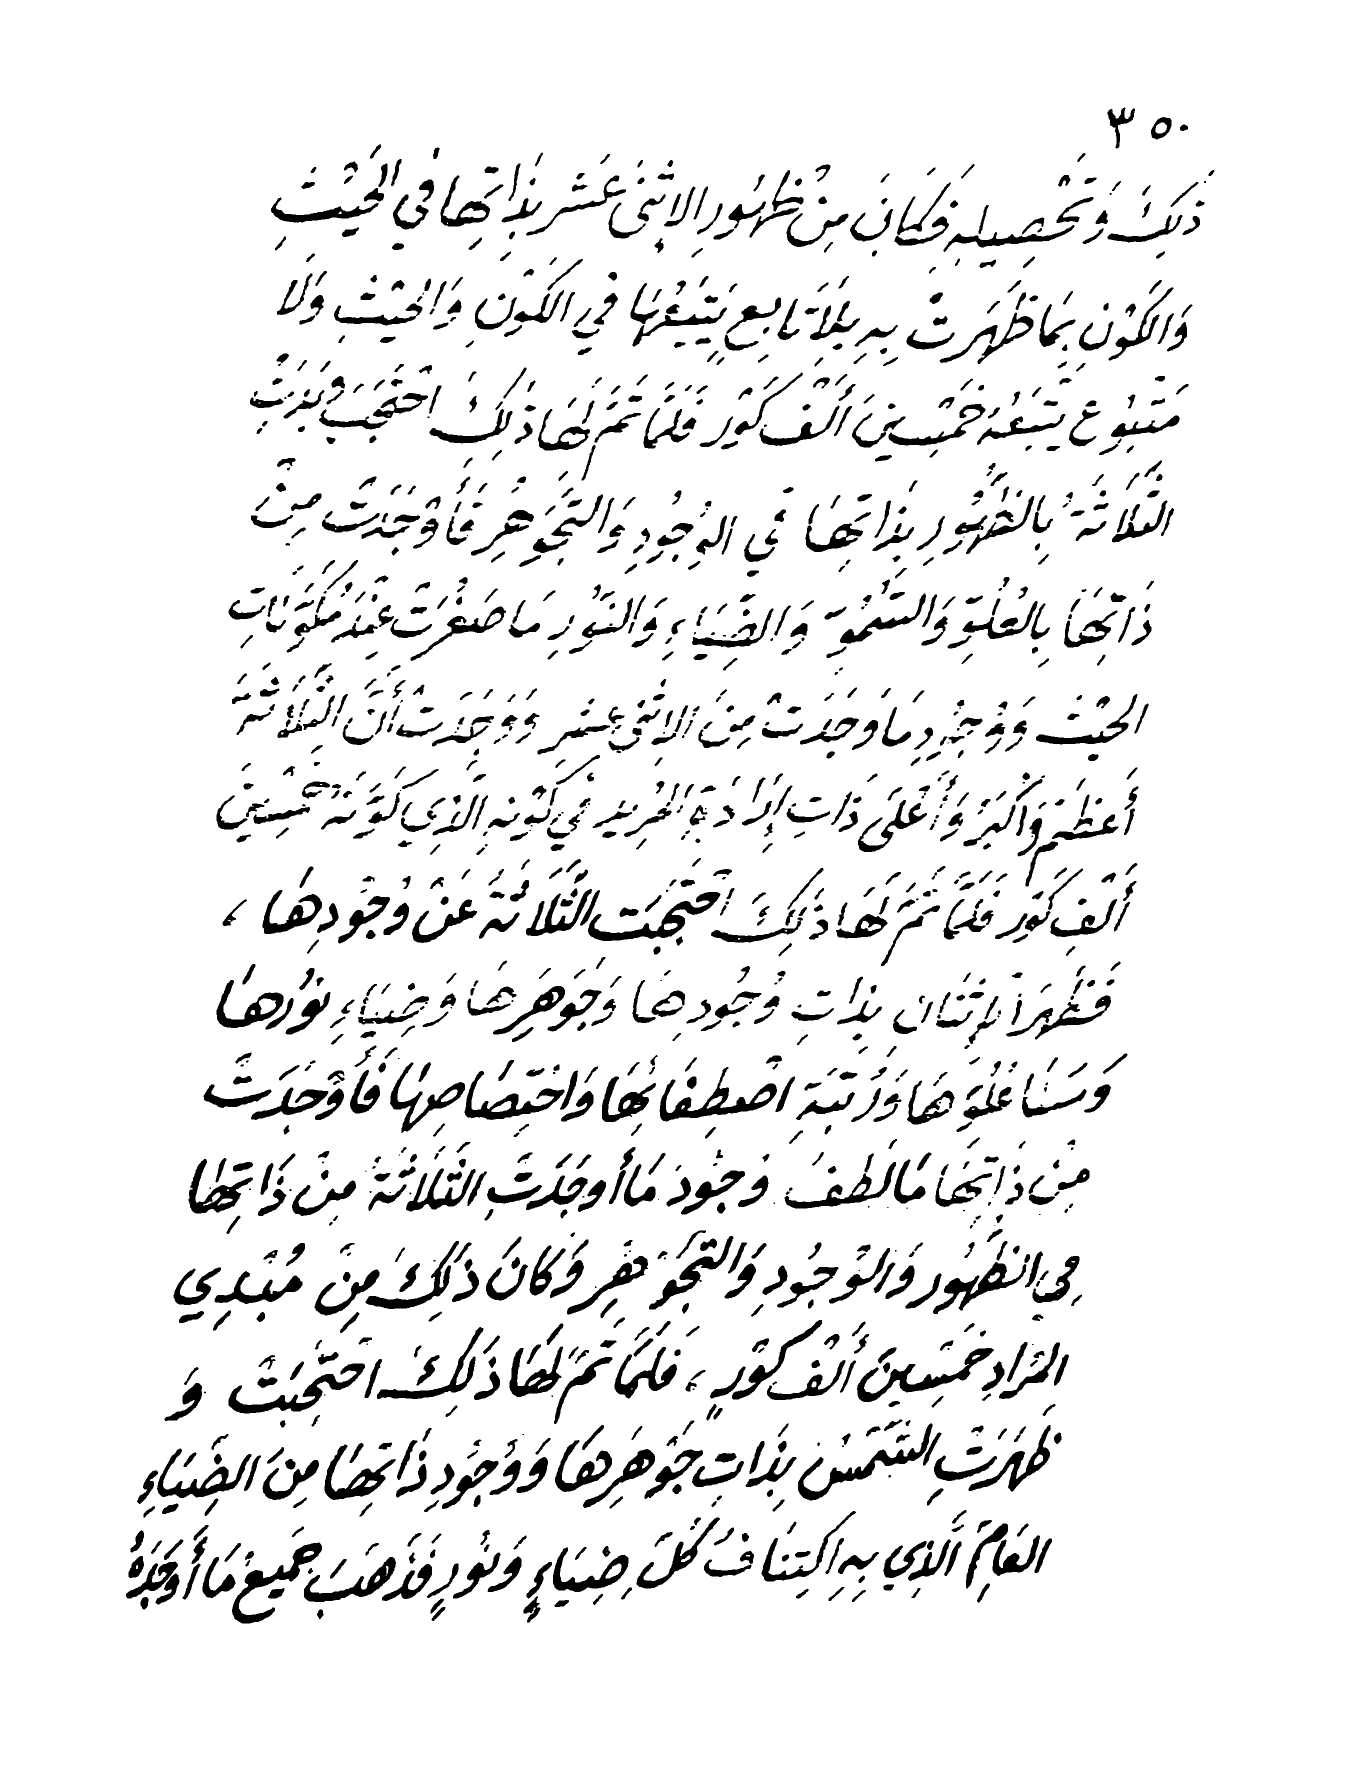 ٣٥٠
ذَلِكَ وَتَحْصِيلِهِ فَكَانَ مِنْ ظُهُورِ الاِثْنَى عَشَر بِذَاتِهَا فِي الحَيْثِ
وَالكَوْنِ بِمَا ظَهَرَتْ بِهِ بِلاَ تَابِعٍ يَتْبَعُهَا فِي الكَوْنِ وَالحَيْثِ وَلَا
مَتْبُوعٍ يَتْبَعُهُ خَمْسِينَ أَلْفَ كَوْرٍ فَلَمَّا تَمَّ لَهَا ذَلِكَ احْتَجَبَ وَبَدَتِ
الثَّلَاثَةُ بِالظُّهُورِ بِذَاتِهَا فِي الوُجُودِ وَالتَّجَوْهُرِ فَأَوْجَدَتْ مِنْ
ذَاتِهَا بِالعُلُوِّ وَالسُّمُوِّ وَالضِّيَاءِ وَالنُّورِ مَا صَغُرَتْ عِنْدَ مُكَوَّنَاتِ
الحَيْثِ وَوُجُودِ مَا وَجَدَتْ مِنَ الاِثْنَى عَشَرِ وَوَجَدَتْ أَنَّ الثَّلَاثَةَ
أَعْظَمْ وَأَكْبَرْ وَأَعْلَى ذَاتِ إِرَادَةِ المُرِيدِ فِي كَوْنِهِ الَّذِي كَوَّنَهُ خَمْسِينَ
أَلْفِ كَوْرٍ فَلَمَّا تَمَّ لَهَا ذَلِكَ احْتَجَبَت الثَّلَاثَةُ عَنْ وُجُودِهَا ،
فَظَهَرَ الإِثْنَانِ بِذَاتِ وُجُودِهَا وَجَوْهَرِهَا وَضِيَاءِ نُورُهَا
وَسَنَا عُلُوِّهَا وَرُتْبَةِ اصْطِفَائِهَا وَاخْتِصَاصِهَا فَأَوْجَدَتْ
مِنْ ذَاتِهَا مَا لَطُفَ وُجُودَ مَا أَوجَدَتْ الثَّلَاثَةُ مِنْ ذَاتِهَا
فِي الظُّهُورِ وَالوُجُودِ وَالتَّجَوْهُرِ وَكَانَ ذَلِكَ مِنْ مُبْدِي
المُرَادِ خَمْسِينَ أَلْفَ كَوْرٍ ، فَلَمَّا تَمَّ لَهَا ذَلِكَ احْتَجَبَتْ وَ
ظَهَرَتِ الشَّمْسُ بِذَاتِ جَوْهَرِهَا وَوُجُودِ ذَاتِهَا مِنَ الضِّيَاءِ
العَامِّ الَّذِي بِهِ اكِتِنَافُ كُلِّ ضِيَاءٍ وَنُورٍ فَذَهَبَ جَمِيعُ مَا أَوجَدَهُ